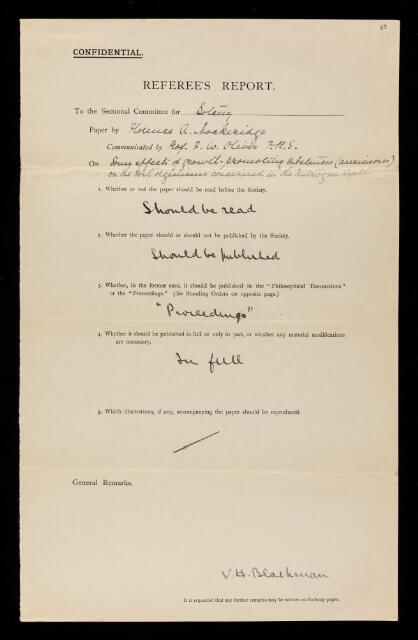 53
CONFIDENTIAL.
REFEREE'S REPORT.
To the Sectional Committee for Botany
Paper by Florence A. Mockeridge
Communicated by Prof. F. W. Oliver F.R.S.
On Some effects of growth-promoting substances (auximones)
on the soil organisms concerned in the Nitrogen Cycle.
1. Whether or not the paper should be read before the Society.
Should be read
2. Whether the paper should or should not be published by the Society.
Should be published
3. Whether, in the former case, it should be published in the "Philosophical Transactions"
or the "Proceedings" (See Standing Orders on opposite page.)
"Proceedings"
4. Whether it should be published in full or only in part, or whether any material modifications
are necessary.
In full
5. Which illustrations, if any, accompanying the paper should be reproduced.
General Remarks.
V. H. Blackman
It is requested that any further remarks may be written on foolscap paper.